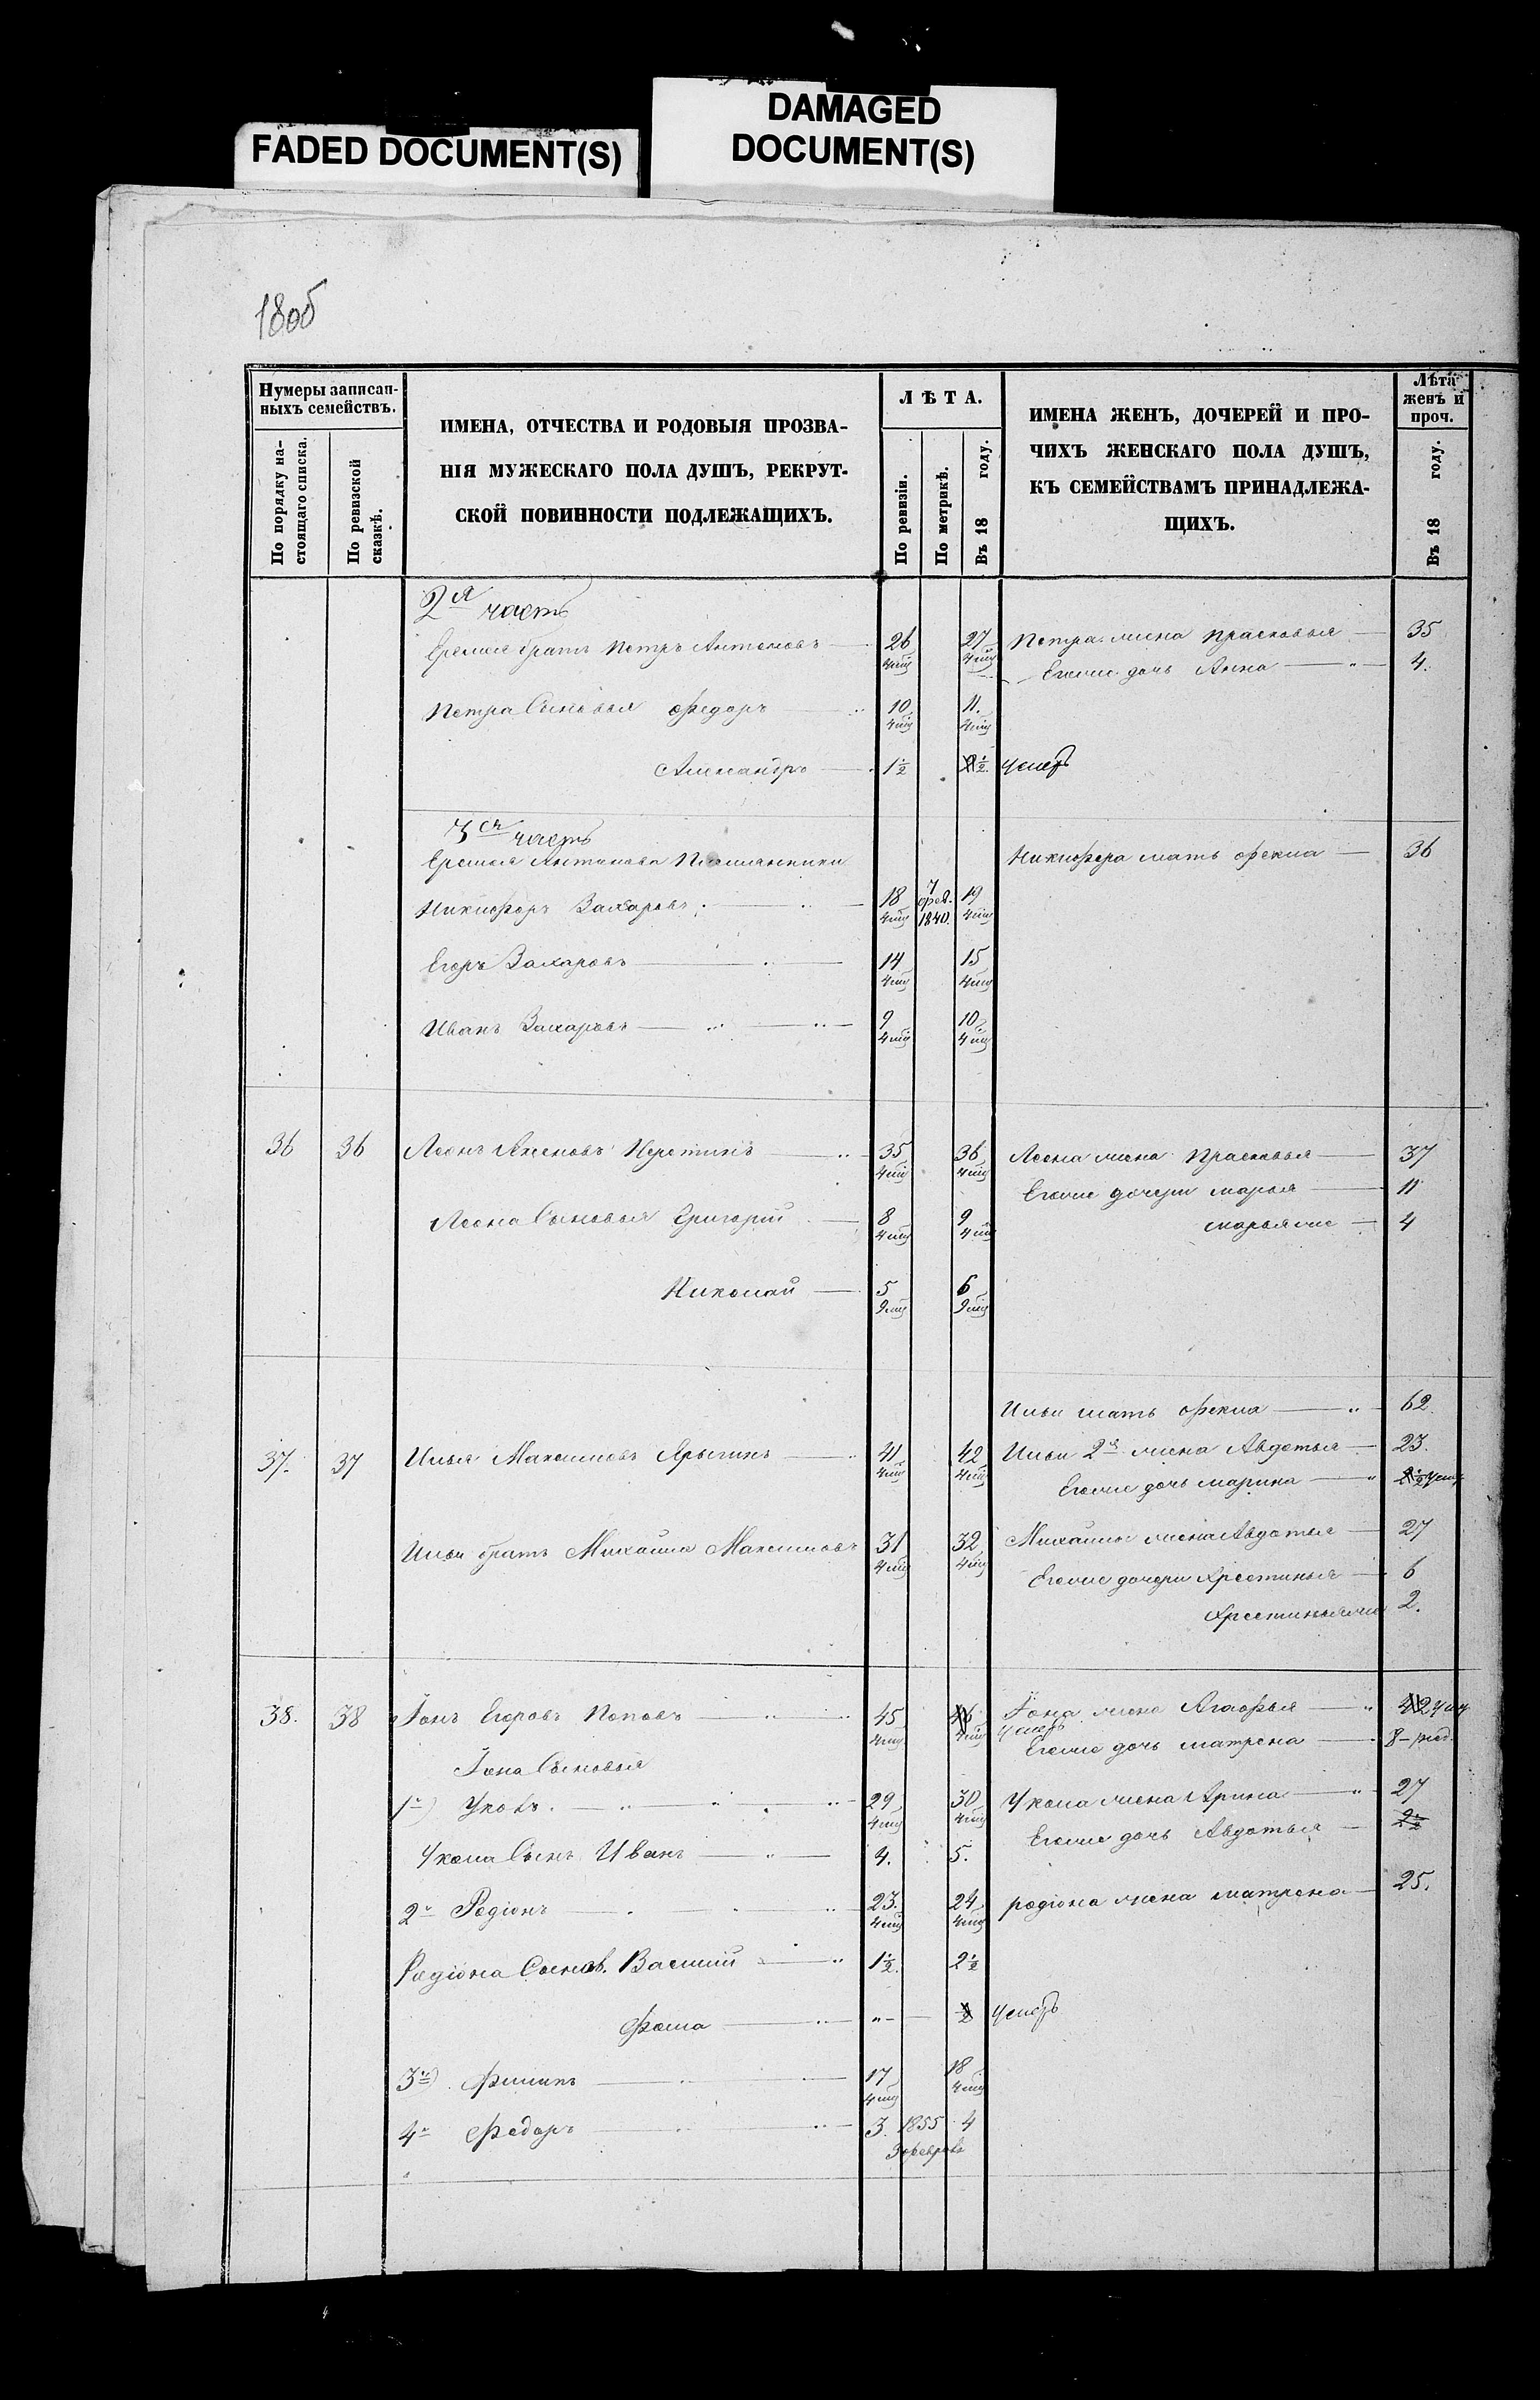 FADED DOCUMENT(S)
DAMAGED
DOCUMENT(S)
180об
Нумеры записан-
ныхъ семействъ.
По порядку на-
стоящаго списка.
По ревизской
сказкѣ.
ИМЕНА, ОТЧЕСТВА И РОДОВЫЯ ПРОЗВА-
НІЯ МУЖЕСКАГО ПОЛА ДУШЪ, РЕКРУТ-
СКОЙ ПОВИННОСТИ ПОДЛЕЖАЩИХЪ.
ЛѢТА.
По ревизіи.
По метрикѣ.
Въ 18 году.
ИМЕНА ЖЕНЪ, ДОЧЕРЕЙ И ПРО-
ЧИХЪ ЖЕНСКАГО ПОЛА ДУШЪ,
КЪ СЕМЕЙСТВАМЪ ПРИНАДЛЕЖА-
ЩИХЪ.
Лѣта
женъ и
проч.
Въ 18 году.
2я часть
Еремея братъ Петръ Антоновъ 26 27 Петра жена Прасковья 35
Егоже дочь Анна 4.
Петра Сыновья Федоръ 10 11.
Александръ 1½ 2½ умеръ
3я часть
Еремея Антонова Племянники Никифора мать Фекла 36
Никифоръ Захаровъ 18 7 фев. 1840. 19
Егоръ Захаровъ 14 15
Иванъ Захаровъ 9 10
36 36 Леонъ Неретинъ 35 36 Леона жена Прасковья 37
Егоже дочери Марья 11
Леона Сыновья Григорий 8 9 Марьяже 4
Николай 5 6
Ильи мать Фекла 62.
37. 37 Илья Максимовъ Ярыгинъ 41 42 Ильи 2я жена Авдотья 23.
Егоже дочь Марина 2½
Ильи братъ Михайла Максимовъ 31 32 Михайлы жена Авдотья 27
Егоже дочери Хрестинья 6
Хрестиньяже 2.
38. 38 Іонъ Егоровъ Поповъ 45 46 умеръ Іона жена Агафья 42
Егоже дочь Матрена 8
Іона Сыновья
1й) Уколъ. 29 30 Укола жена Арина 27
Егоже дочь Авдотья 2½
Укола Сынъ Иванъ 4. 5.
2й Родіонъ 23. 24 Родіона жена Матрена 25.
Родіона Сынов. Василий 1½. 2½
Фома ½ умеръ
3й) Филипъ 17 18
4й Федоръ 3. 1855 4
3 февраля